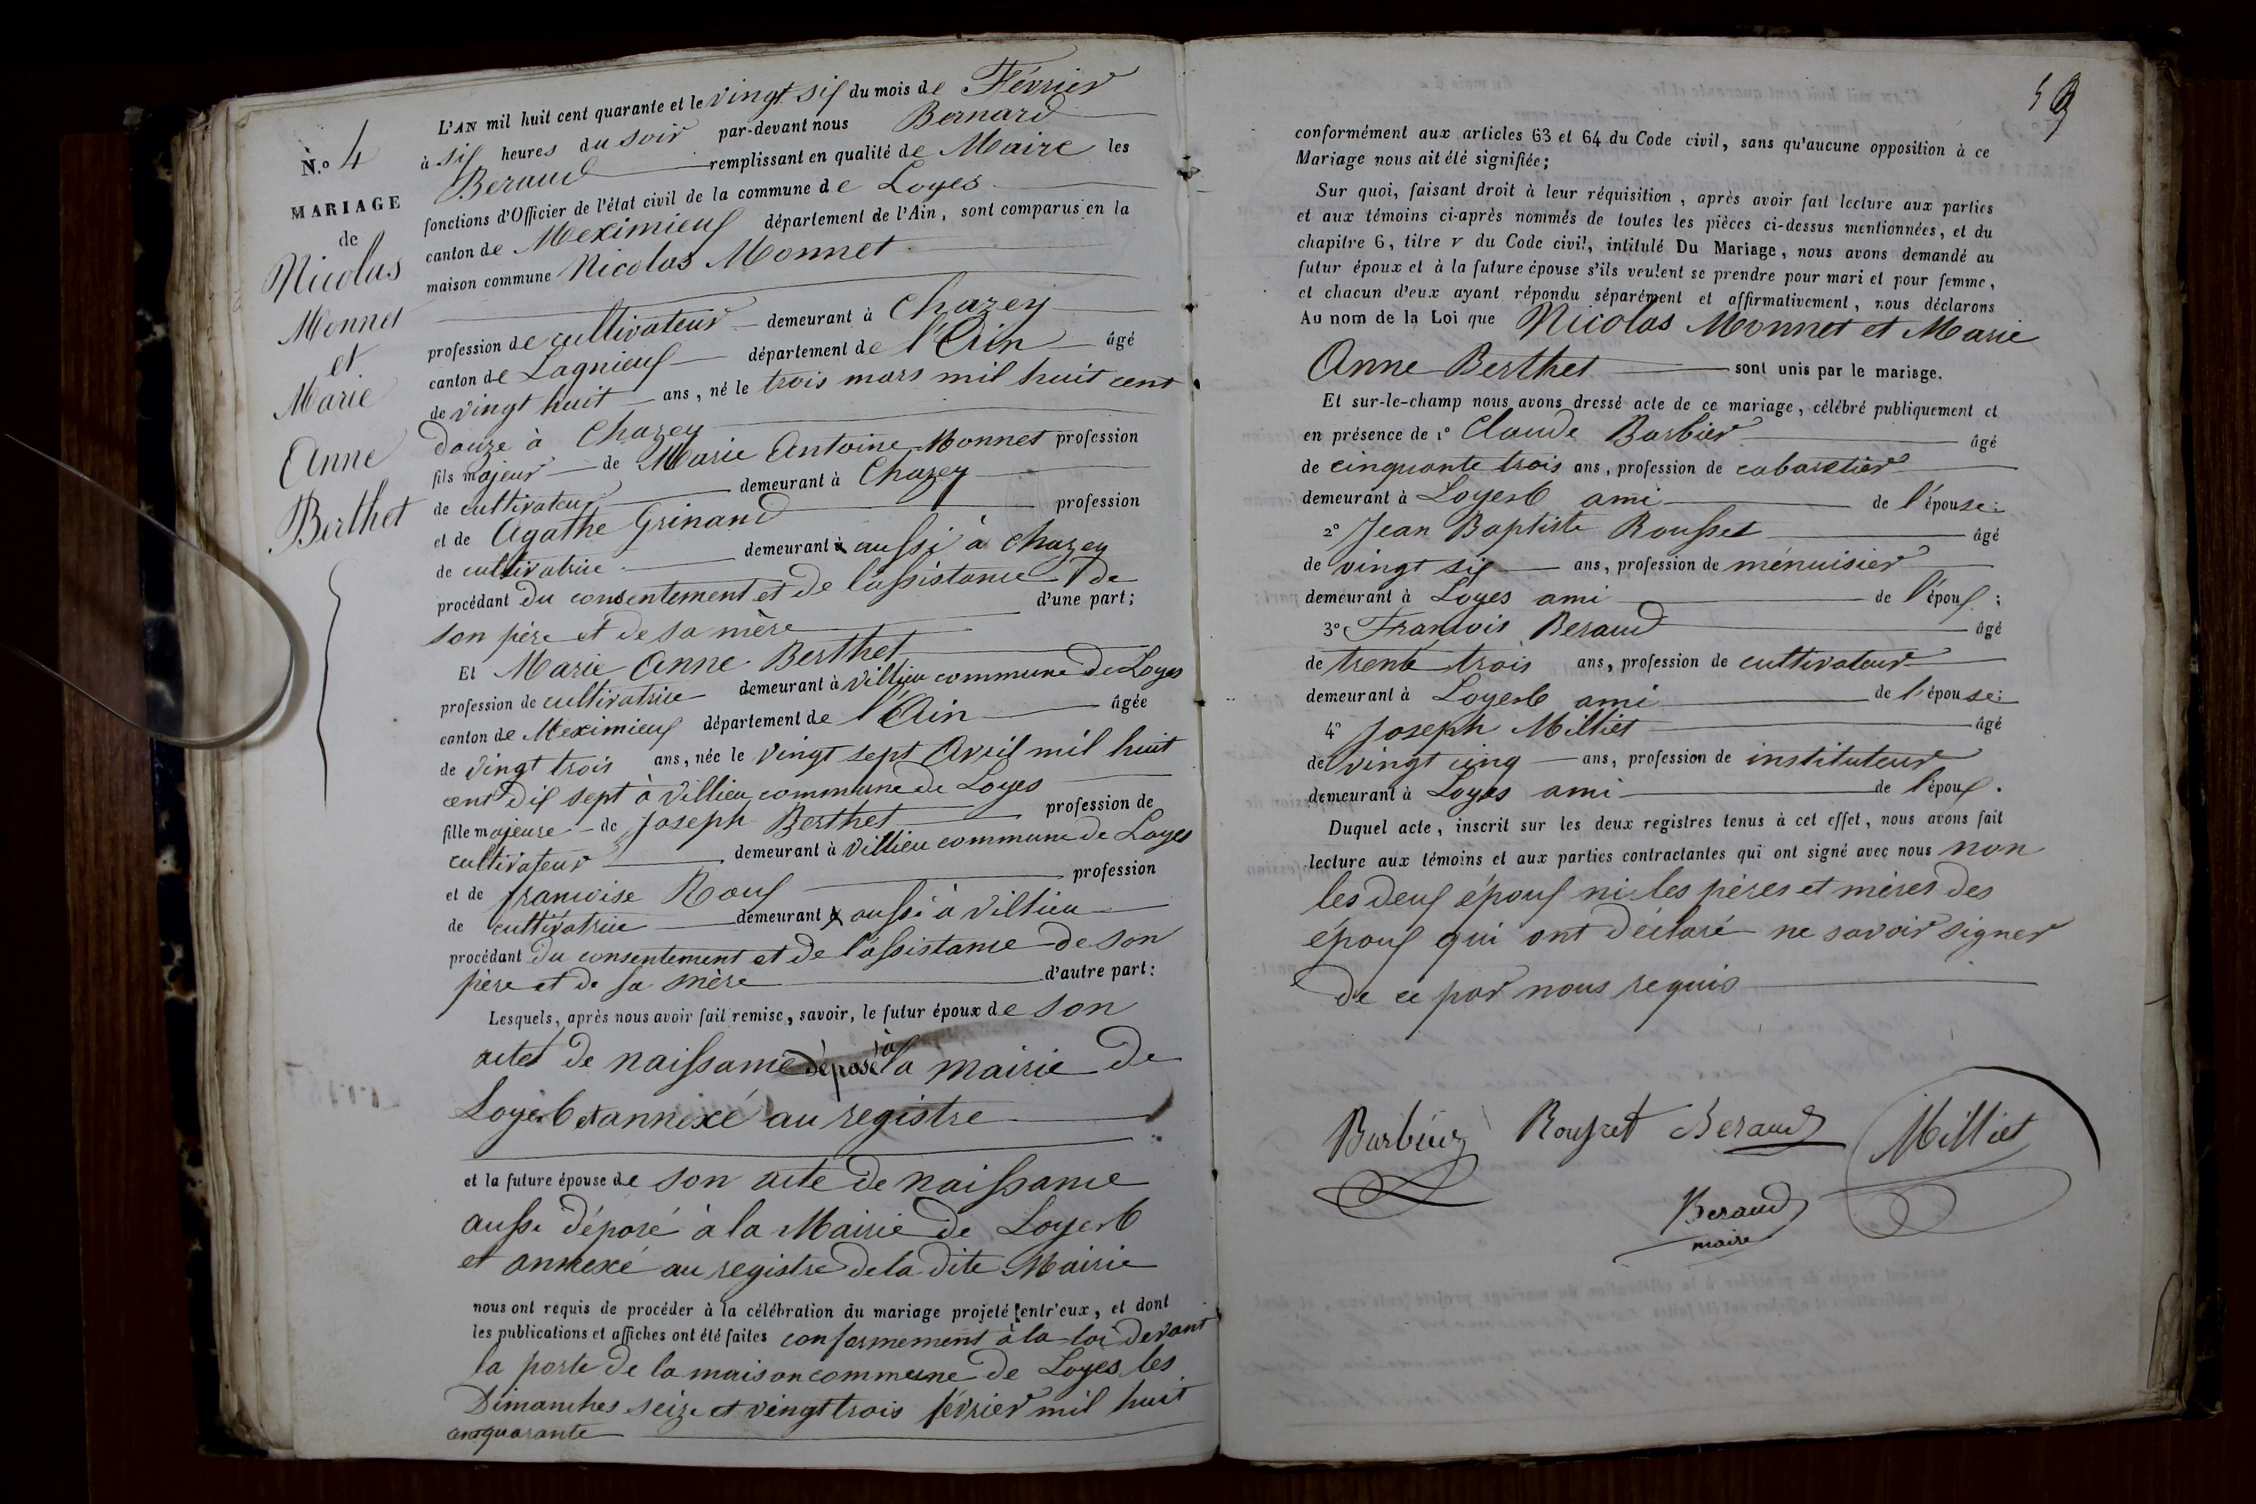 N.o 4
MARIAGE
de
Nicolas
Monnet
et
Marie
Anne
Berthet
L'AN mil huit cent quarante et le vingt six du mois de Février
à six heures du soir par-devant nous Bernard
Beraud remplissant en qualité de Maire les
fonctions d'Officier de l'état civil de la commune de Loyes
canton de Meximieux département de l'Ain, sont comparus en la
maison commune Nicolas Monnet
profession de cultivateur demeurant à Chazey
canton de Lagnieux département de l'Ain âgé
de vingt huit ans, né le trois mars mil huit cent
douze à Chazey
fils majeur de Marie Antoine Monnet profession
de cultivateur demeurant à Chazey
et de Agathe Grinand profession
de cultivatrice demeurant à aussi à Chazey
procédant du consentement et de l'assistance de
son père et de sa mère d'une part;
Et Marie Anne Berthet
profession de cultivatrice demeurant à Villieu commune de Loyes
canton de Meximieux département de l'Ain âgée
de vingt trois ans, née le vingt sept Avril mil huit
cent dix sept à Villieu commune de Loyes
fille majeure de Joseph Berthet profession de
cultivateur demeurant à Villieu commune de Loyes
et de françoise Roux profession
de cultivatrice demeurant à aussi à Villieu
procédant du consentement et de l'assistance de son
père et de sa mère d'autre part:
Lesquels, après nous avoir fait remise, savoir, le futur époux de son
acte de naissance déposé à la mairie de
Loyes et annexé au registre
et la future épouse de son acte de naissance
aussi déposé à la Mairie de Loyes
et annexé au registre de la dite Mairie
nous ont requis de procéder à la célébration du mariage projeté entr'eux, et dont
les publications et affiches ont été faites conformement à la loi devant
la porte de la maison commune de Loyes les
Dimanches seize et vingt trois février mil huit
cent quarante
conformément aux articles 63 et 64 du Code civil, sans qu'aucune opposition à ce
Mariage nous ait été signifiée;
Sur quoi, faisant droit à leur réquisition, après avoir fait lecture aux parties
et aux témoins ci-après nommés de toutes les pièces ci-dessus mentionnées, et du
chapitre 6, titre v du Code civil, intitulé Du Mariage, nous avons demandé au
futur époux et à la future épouse s'ils veulent se prendre pour mari et pour femme,
et chacun d'eux ayant répondu séparément et affirmativement, nous déclarons
Au nom de la Loi que Nicolas Monnet et Marie
Anne Berthet sont unis par le mariage.
Et sur-le-champ nous avons dressé acte de ce mariage, célébré publiquement et
en présence de 1° Claude Barbier âgé
de cinquante trois ans, profession de cabaretier
demeurant à Loyes ami de l'épouse:
2° Jean Baptiste Rousset âgé
de vingt six ans, profession de menuisier
demeurant à Loyes ami de l'époux:
3° François Beraud âgé
de trente trois ans, profession de cultivateur
demeurant à Loyes ami de l'épouse:
4° Joseph Milliet âgé
de vingt cinq ans, profession de instituteur
demeurant à Loyes ami de l'époux.
Duquel acte, inscrit sur les deux registres tenus à cet effet, nous avons fait
lecture aux témoins et aux parties contractantes qui ont signé avec nous non
les deux époux ni les pères et mères des
époux qui ont déclaré ne savoir signer
de ce par nous requis
Barbier Rousset Beraud Milliet
Beraud
maire